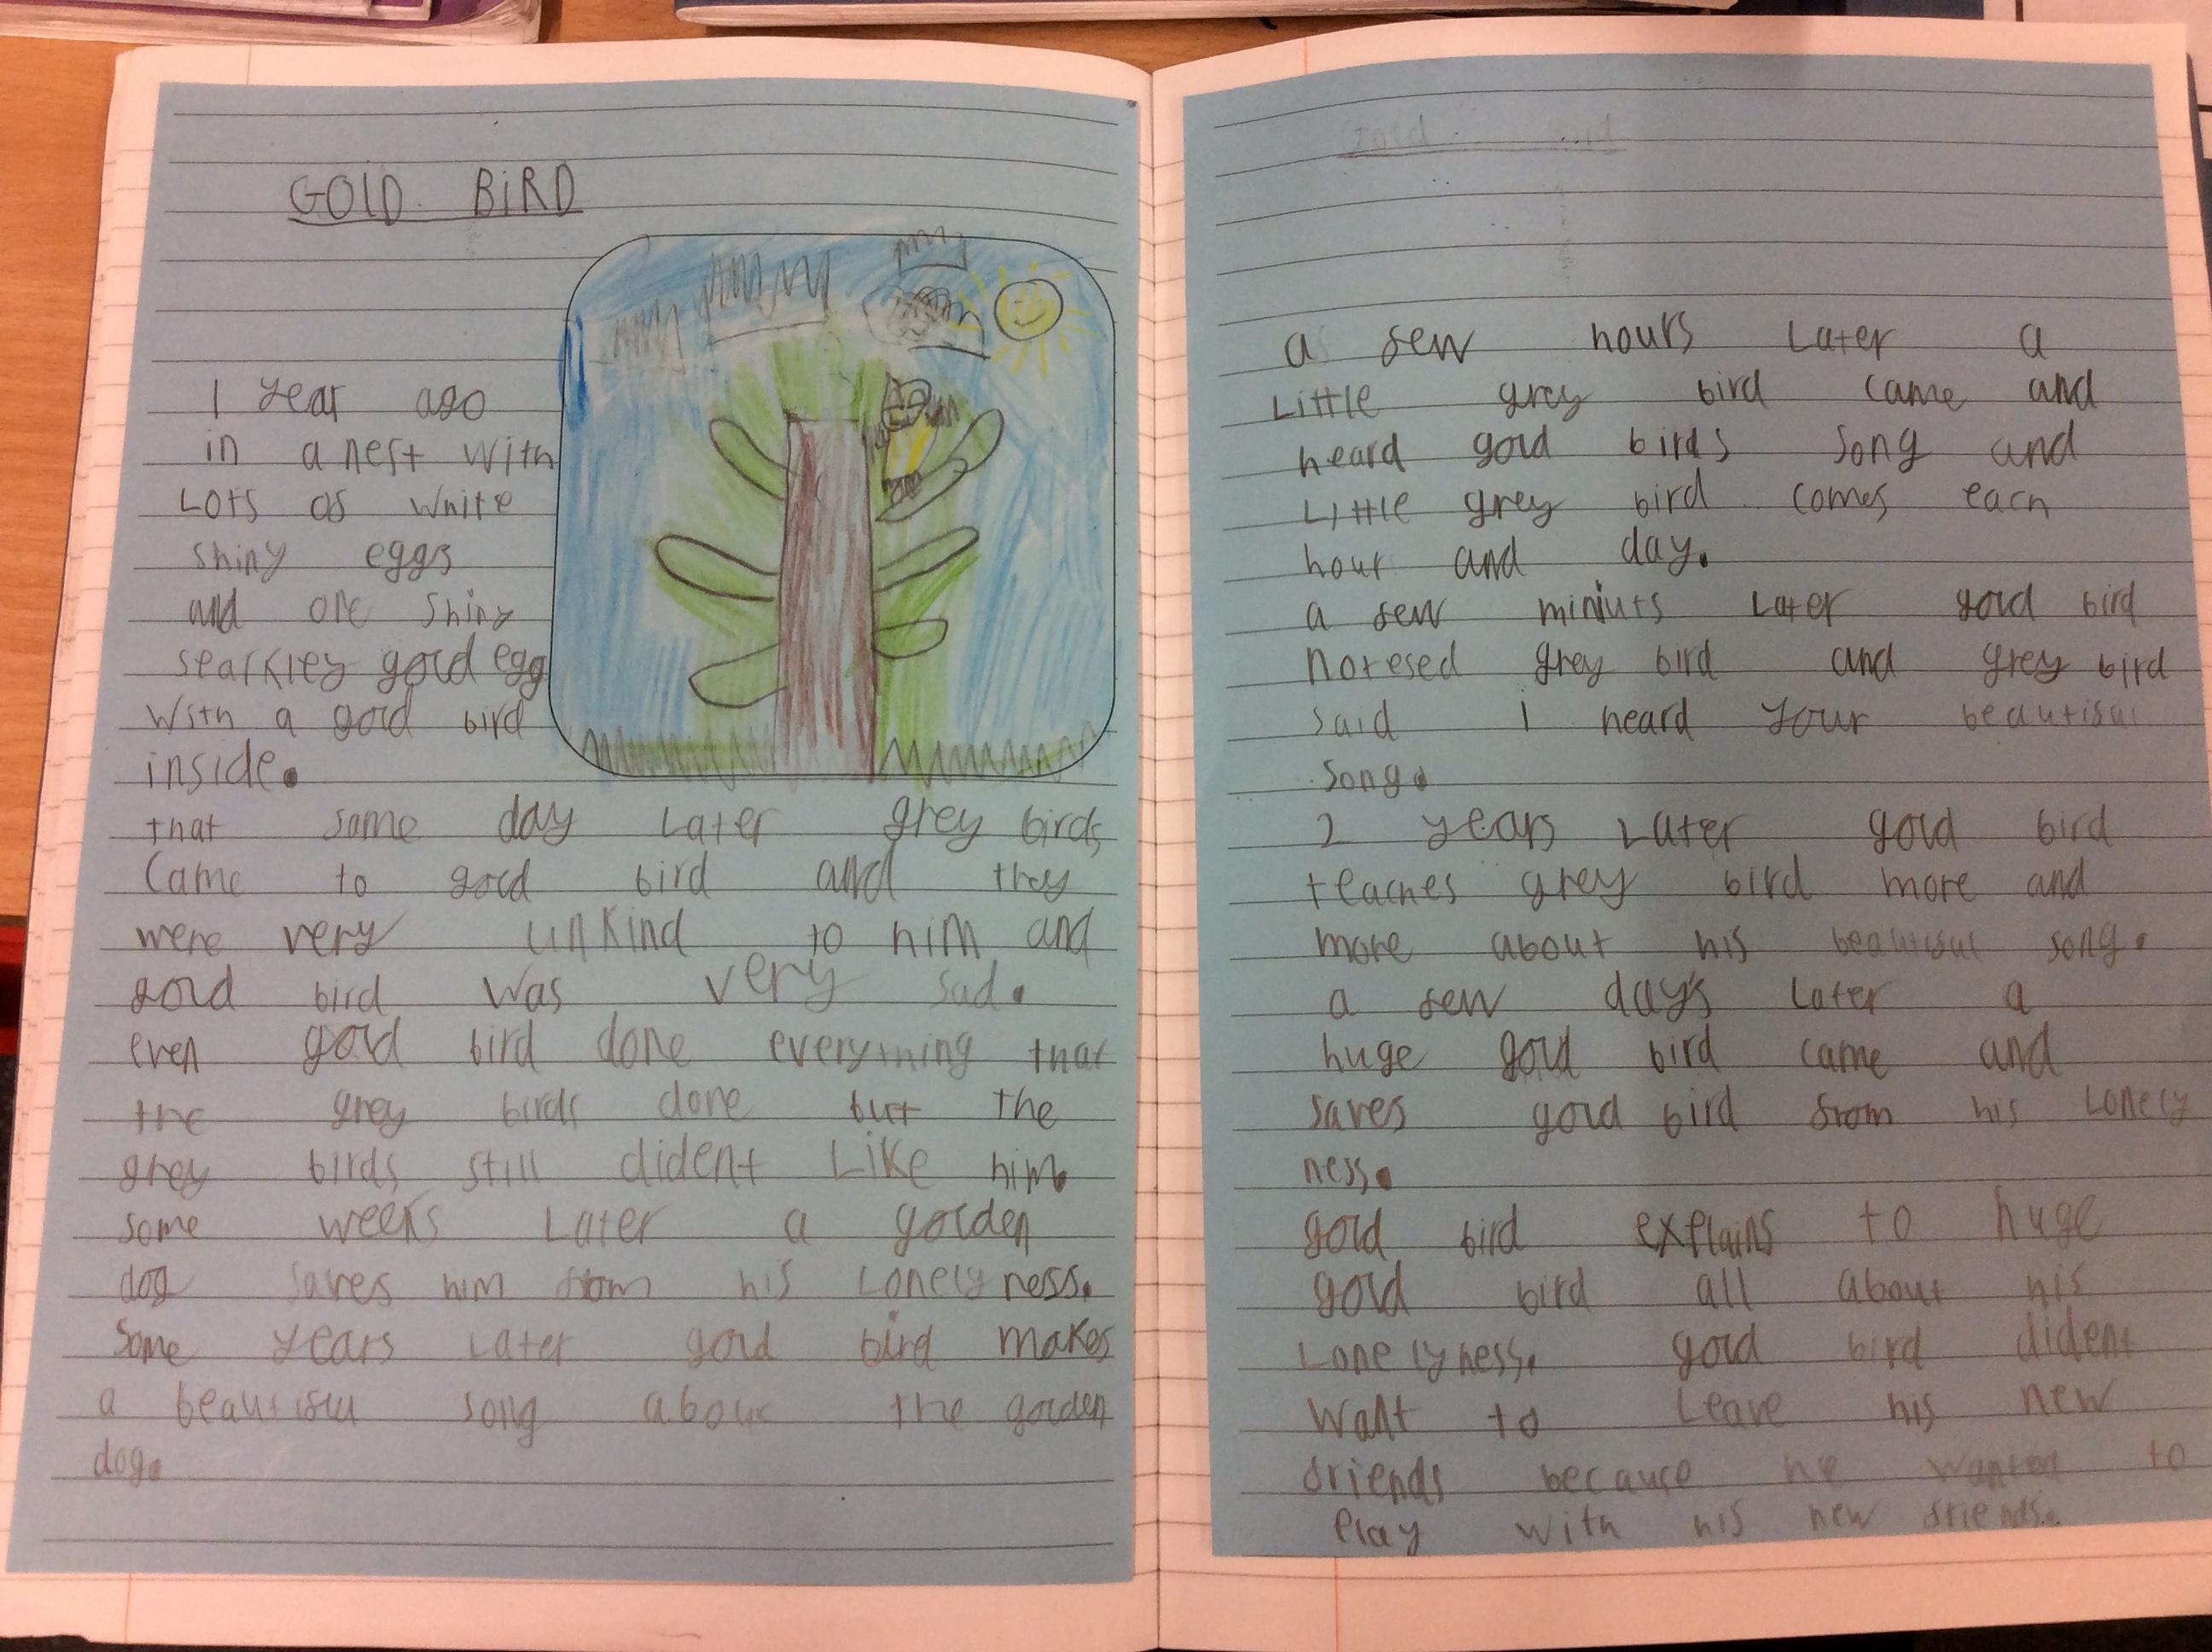 GOLD BIRD
1 year ago
in a nest with
Lots of white
shiny eggs
and one shiny
searkley gold egg
with a gold bird
inside.
that same day Later grey birds
Came to gold bird and they
were very unkind to him and
gold bird was very sad.
even gold bird done everything that
the grey birds done but the
grey birds still dident Like him.
some weeks Later a golden
dog saves him from his Lonelyness.
Some years Later gold bird makes
a beautisul song about the golden
dog.
Gold bird
a few hours Later a
Little grey bird came and
heard gold birds song and
Little grey bird comes each
hour and day.
a few miniuts Later gold bird
notesed grey bird and grey bird
said i heard your beautiful
song.
2 years Later gold bird
teaches grey bird more and
more about his beautiful song.
a few day's Later a
huge gold bird came and
saves gold bird from his Lonely
ness.
gold bird explains to huge
gold bird all about his
Lonelyness. gold bird dident
want to Leave his new
friends because he wanted to
Play with his new friends.